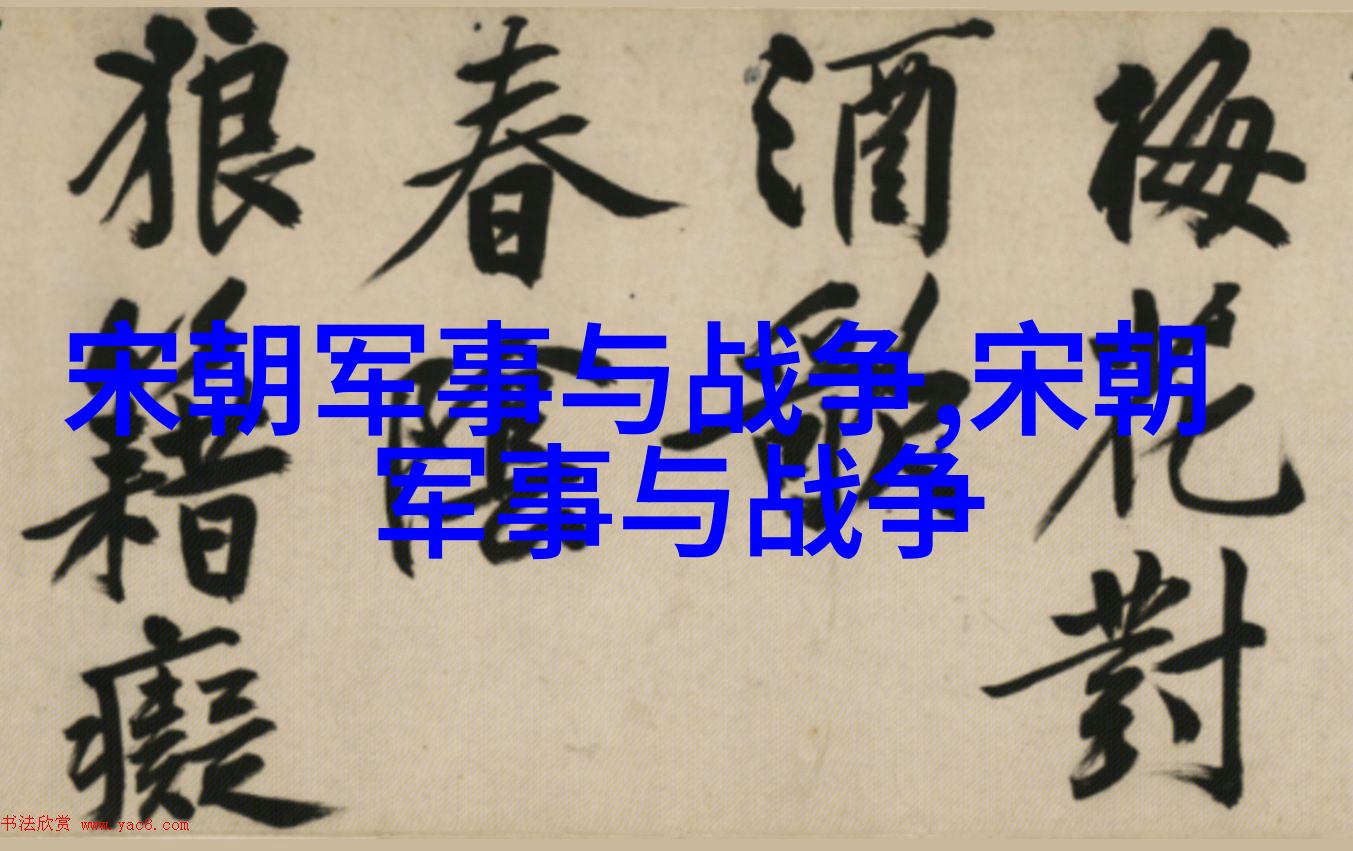 宋朝军事与战争,宋朝
军事与战争
梅花對
酒
春
狼籍癡
书法欣赏 www.yac8.com